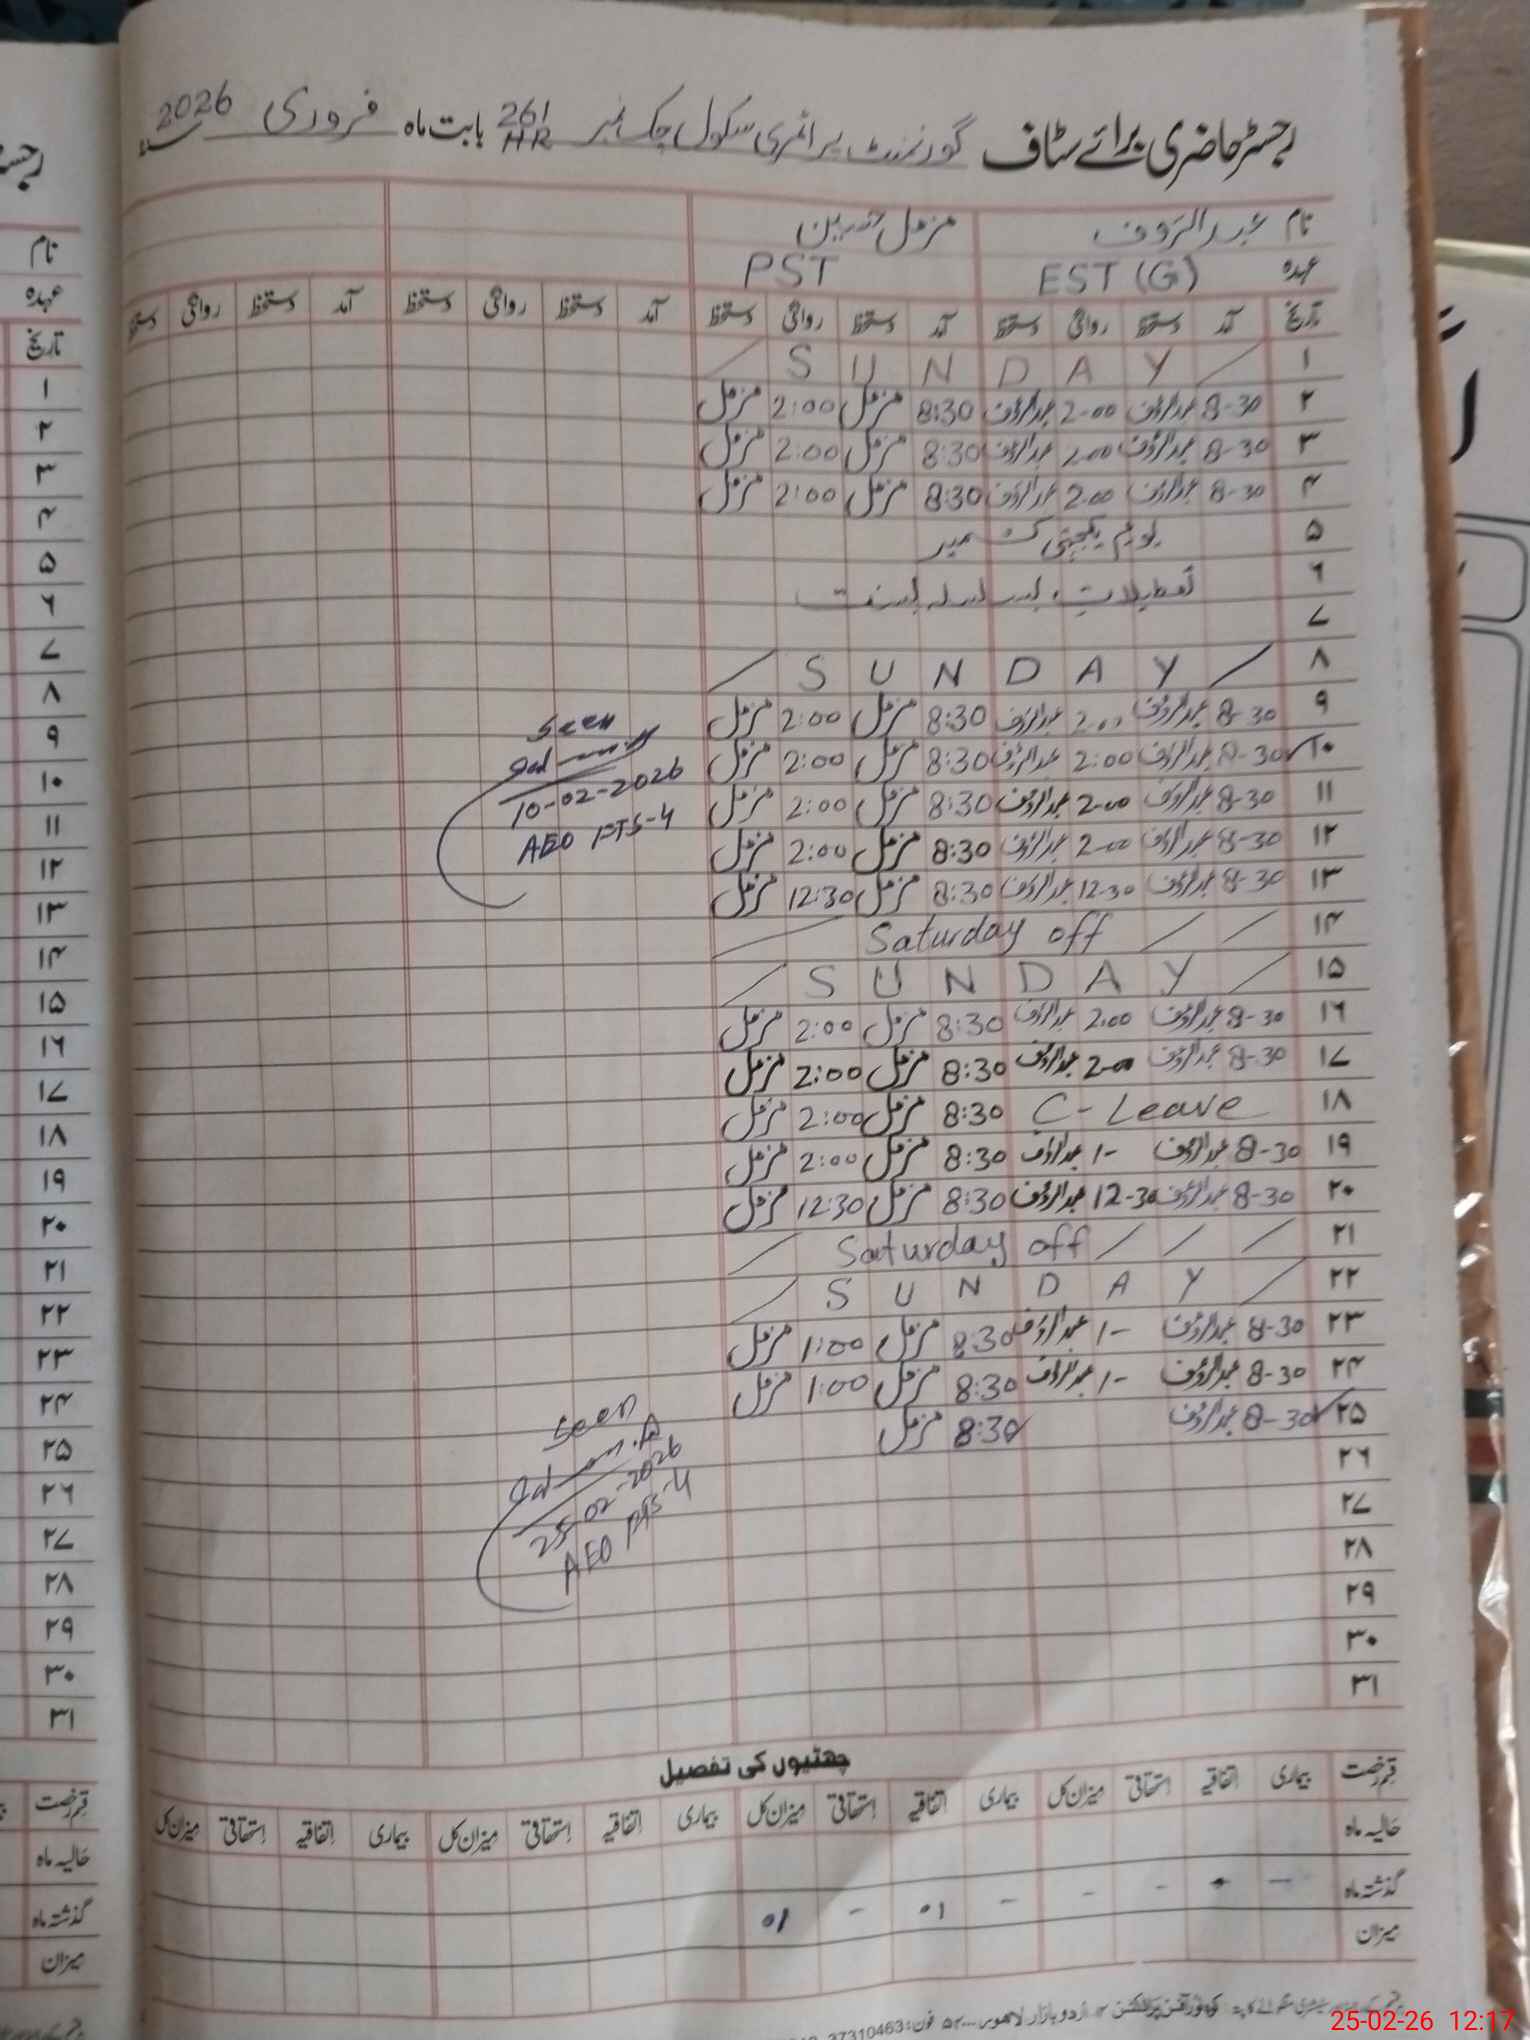 رجسٹر حاضری برائے سٹاف گورنمنٹ پرائمری سکول چک نمبر 261/HR بابت ماہ فروری سنہ 2026
نام عبدالرؤف مزمل حسین
عہدہ EST (G) PST
تاریخ آمد دستخط روانگی دستخط آمد دستخط روانگی دستخط آمد دستخط روانگی دستخط آمد دستخط روانگی دستخط
۱ SUNDAY
۲ 8-30 عبدالرؤف 2-00 عبدالرؤف 8:30 مزمل 2:00 مزمل
۳ 8-30 عبدالرؤف 2-00 عبدالرؤف 8:30 مزمل 2:00 مزمل
۴ 8-30 عبدالرؤف 2-00 عبدالرؤف 8:30 مزمل 2:00 مزمل
۵ یوم یکجہتی کشمیر
۶ تعطیلات بسلسلہ بسنت
۷
۸ SUNDAY
۹ 8-30 عبدالرؤف 2-00 عبدالرؤف 8:30 مزمل 2:00 مزمل
۱۰ 8-30 عبدالرؤف 2:00 عبدالرؤف 8:30 مزمل 2:00 مزمل
۱۱ 8-30 عبدالرؤف 2-00 عبدالرؤف 8:30 مزمل 2:00 مزمل
۱۲ 8-30 عبدالرؤف 2-00 عبدالرؤف 8:30 مزمل 2:00 مزمل
۱۳ 8-30 عبدالرؤف 12-30 عبدالرؤف 8:30 مزمل 12:30 مزمل
seen
10-02-2026
AEO PTS-4
۱۴ Saturday off
۱۵ SUNDAY
۱۶ 8-30 عبدالرؤف 2:00 عبدالرؤف 8:30 مزمل 2:00 مزمل
۱۷ 8-30 عبدالرؤف 2-00 عبدالرؤف 8:30 مزمل 2:00 مزمل
۱۸ C-Leave 8:30 مزمل 2:00 مزمل
۱۹ 8-30 عبدالرؤف 1- عبدالرؤف 8:30 مزمل 2:00 مزمل
۲۰ 8-30 عبدالرؤف 12-30 عبدالرؤف 8:30 مزمل 12:30 مزمل
۲۱ Saturday off
۲۲ SUNDAY
۲۳ 8-30 عبدالرؤف 1- عبدالرؤف 8:30 مزمل 1:00 مزمل
۲۴ 8-30 عبدالرؤف 1- عبدالرؤف 8:30 مزمل 1:00 مزمل
۲۵ 8-30 عبدالرؤف 8:30 مزمل
seen
25-02-2026
AEO PTS-4
۲۶
۲۷
۲۸
۲۹
۳۰
۳۱
چھٹیوں کی تفصیل
قسم رخصت بیماری اتفاقیہ استحقاقی میزان کل بیماری اتفاقیہ استحقاقی میزان کل بیماری اتفاقیہ استحقاقی میزان کل بیماری اتفاقیہ استحقاقی میزان کل
حالیہ ماہ
گذشتہ ماہ - - - - - 01 - 01
میزان
اردو بازار لاہور فون: 37310463
رجسٹر
نام
عہدہ
تاریخ
۱
۲
۳
۴
۵
۶
۷
۸
۹
۱۰
۱۱
۱۲
۱۳
۱۴
۱۵
۱۶
۱۷
۱۸
۱۹
۲۰
۲۱
۲۲
۲۳
۲۴
۲۵
۲۶
۲۷
۲۸
۲۹
۳۰
۳۱
قسم رخصت
حالیہ ماہ
گذشتہ ماہ
میزان
25-02-26 12:17